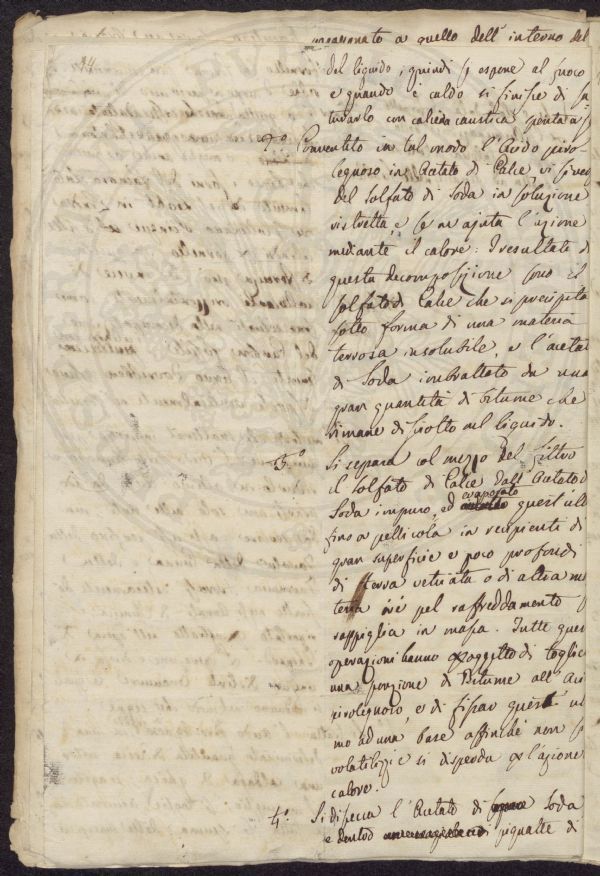 a quello dell'interno del
del liquido, quindi si espone al fuoco
e quando è caldo si finisce di
turarlo con calce caustica
Convertito in tal modo l'Acido piro-
legnoso in Acetato di Calce, vi si
del Solfato di Soda in soluzione
ristretta, e se ne ajuta l'azione
mediante il calore: I resultati di
questa decomposizione sono il
solfato di Calce che si precipita
sotto forma di una materia
terrosa insolubile, e l'acetat
di Soda imbrattato da una
gran quantità di bitume che
rimane disciolto nel liquido.
3.° Si separa col mezzo del filtro
il solfato di Calce dall'Acetato d
Soda impuro, ed evaporato quest'ul
fino a pellicola in recipienti di
gran superficie e poco profondi
di terra vetriata o di altra ma
teria ove pel raffreddamento
rappiglia in massa. Tutte ques
operazioni hanno p oggetto di toglie
una porzione di Bitume all'Aci
pirolegnoso, e di fissar quest ul
mo ad una base affinchè non si
volatilizzi e si disperda p l'azione
calore.
4.° Si disecca l'Acetato di Soda
e dentro pignatte di